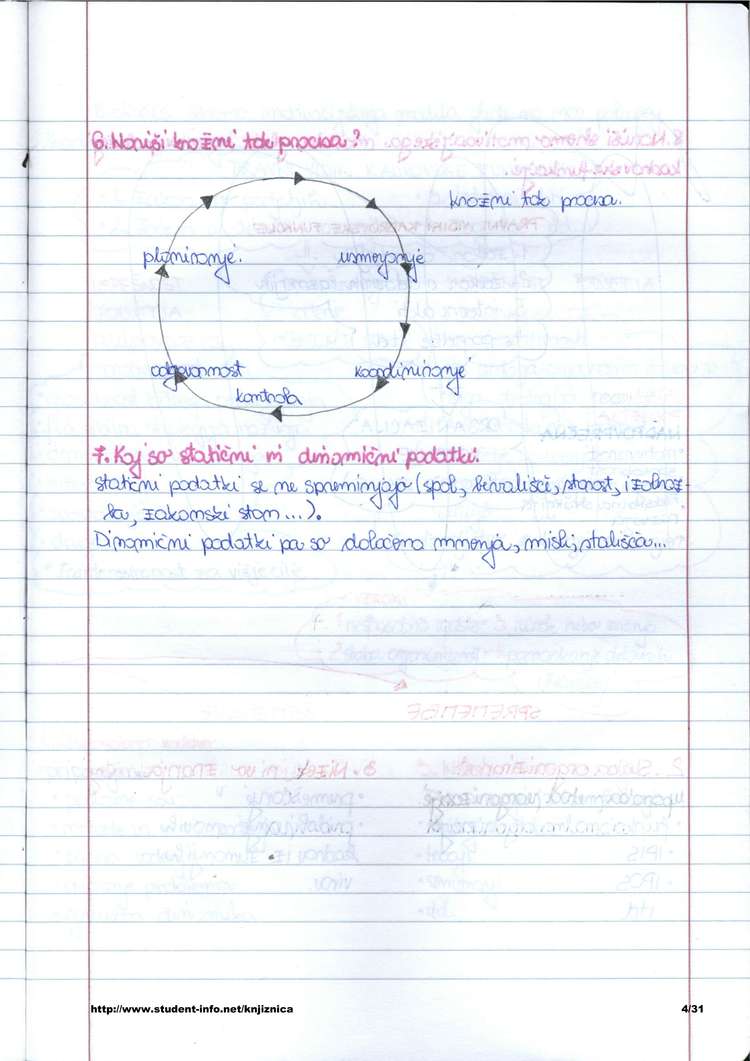 6. Nariši krožni tok procesa?
krožni tok procesa.
planiranje.
usmerjanje
odgovornost
koordiniranje
kontrola
7. Kaj so statični in dinamični podatki.
statični podatki se ne spreminjajo (spol, bivališče, starost, izobraz-
ba, zakonski stan...).
Dinamični podatki pa so določena mnenja, misli, stališča...
http://www.student-info.net/knjiznica
4/31